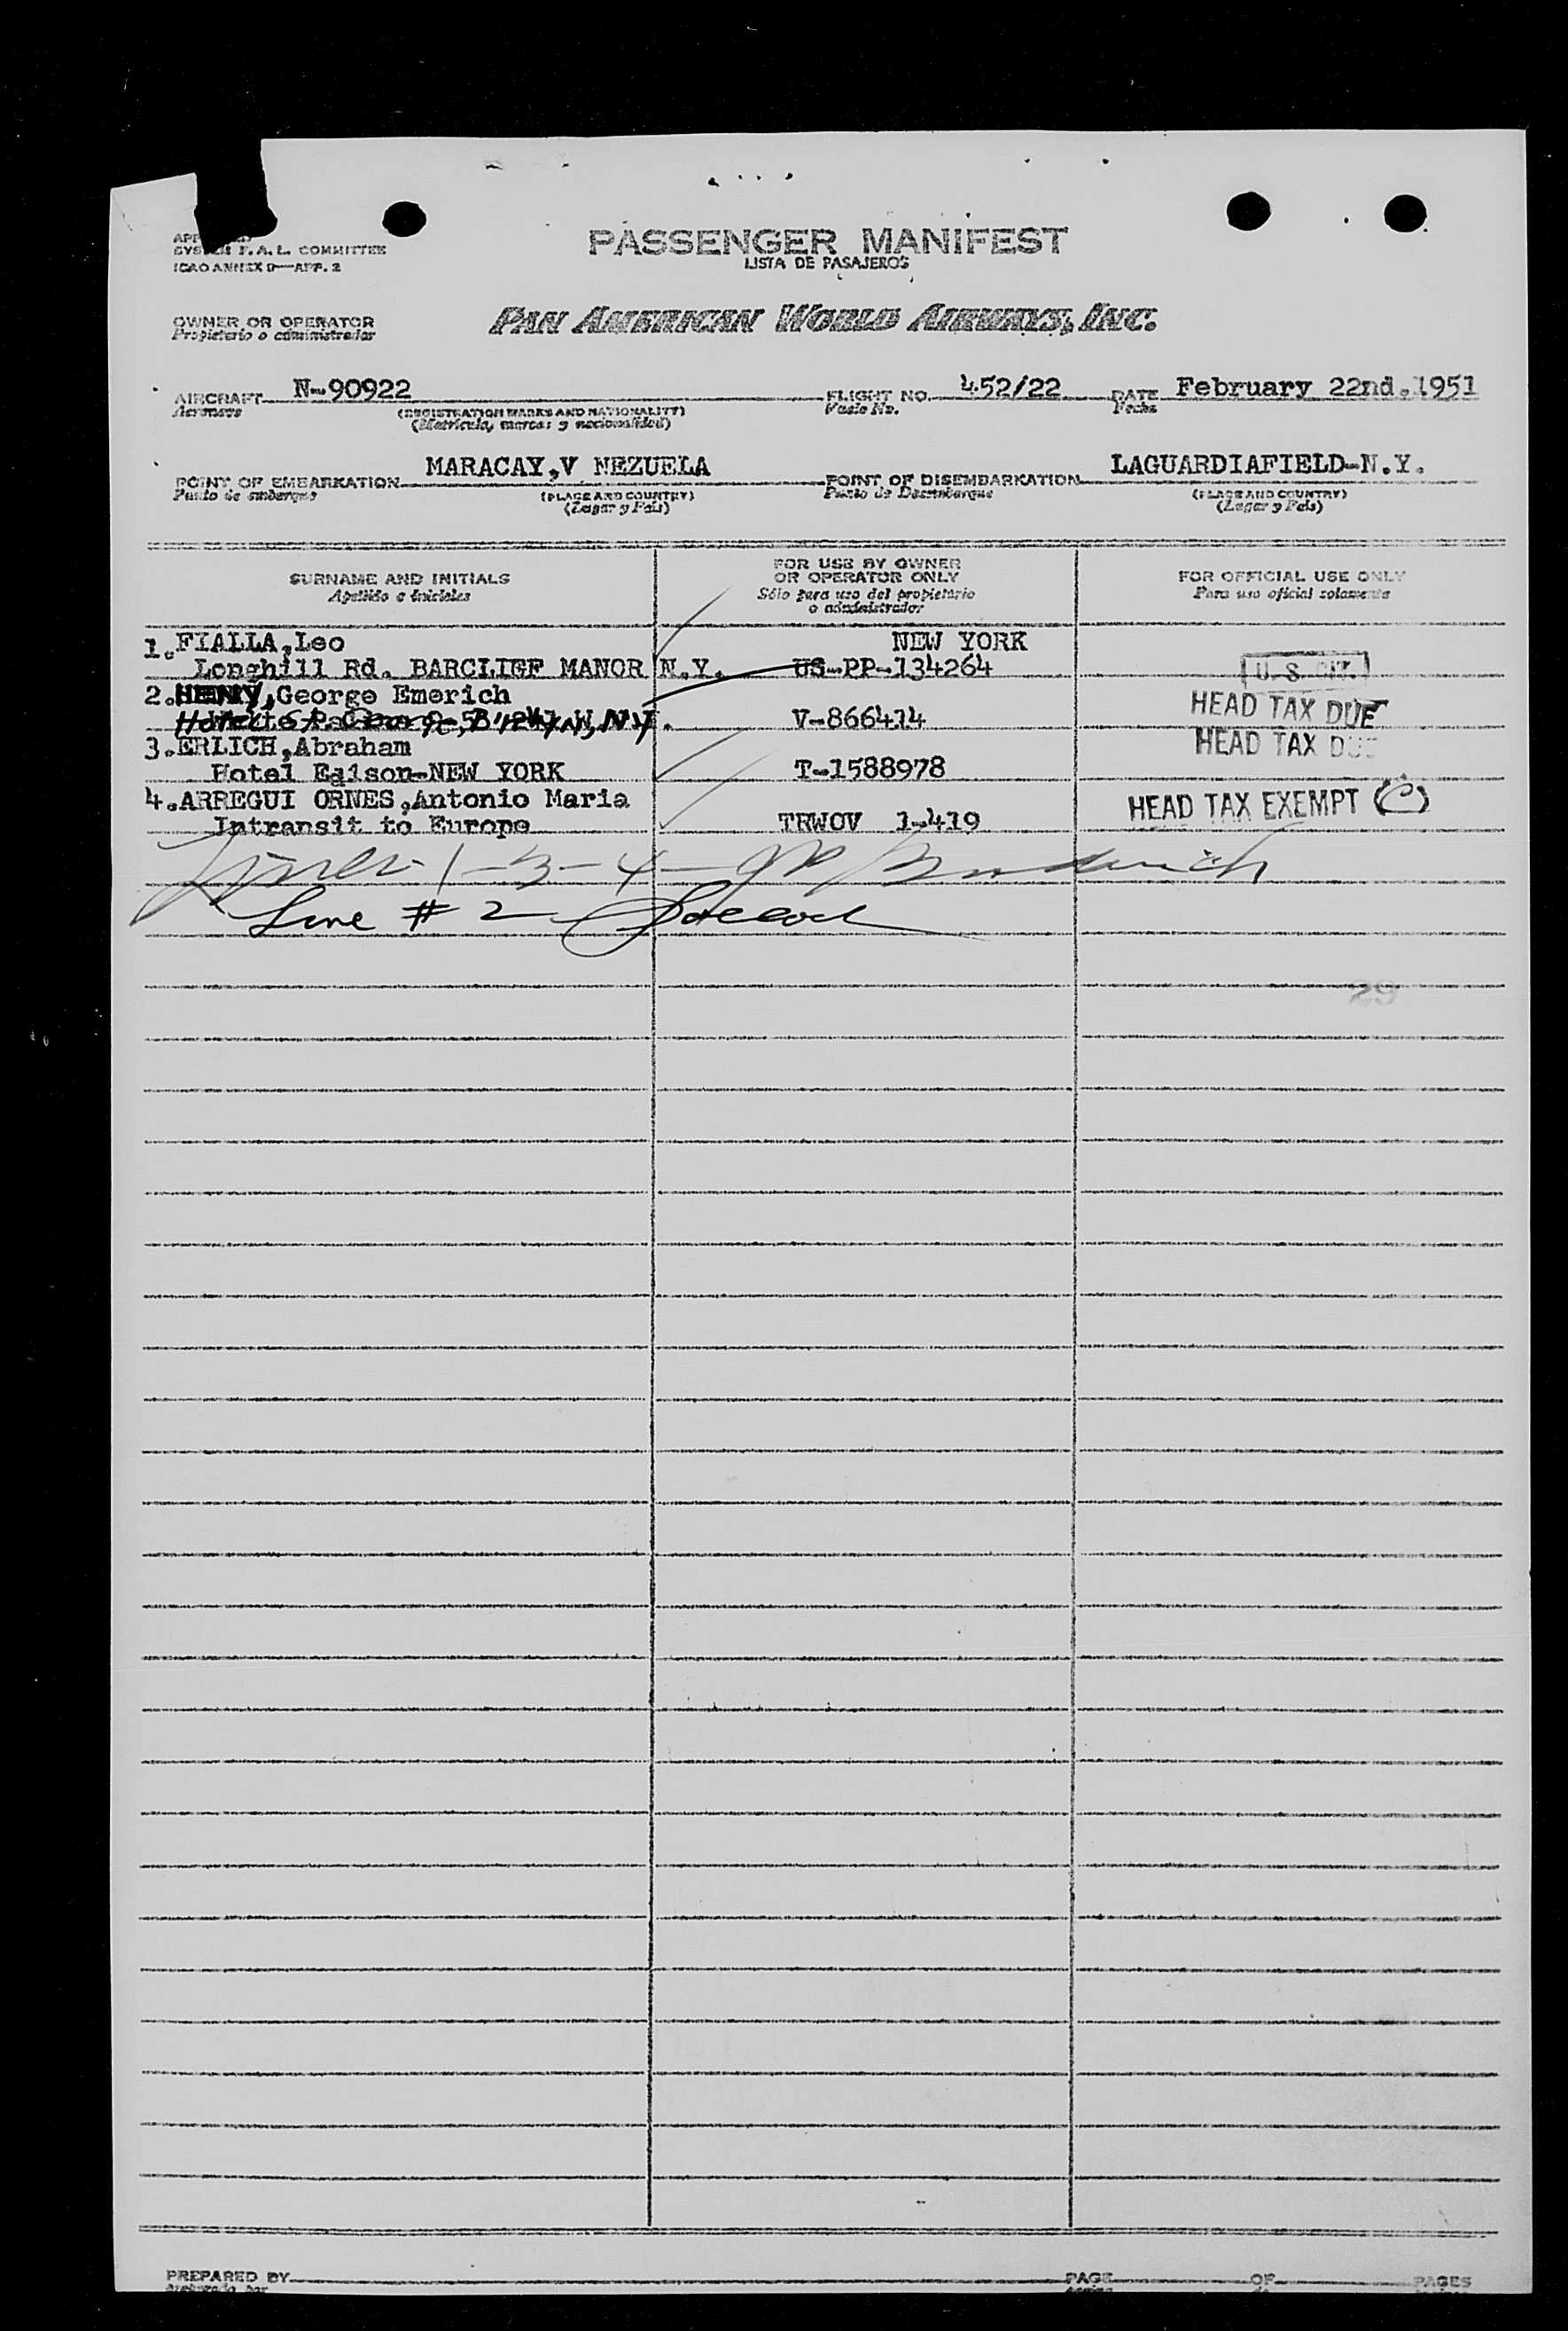 F. A. L. COMMITTEE
ICAO ANNEX 9—APP. 2
PASSENGER MANIFEST
LISTA DE PASAJEROS
OWNER OR OPERATOR
Propietario o administrador
PAN AMERICAN WORLD AIRWAYS, INC.
AIRCRAFT N-90922 FLIGHT NO. 452/22 DATE February 22nd.1951
Aeronave (REGISTRATION MARKS AND NATIONALITY) Vuelo No. Fecha
(Matrícula, marcas y nacionalidad)
POINT OF EMBARKATION MARACAY,V NEZUELA POINT OF DISEMBARKATION LAGUARDIAFIELD-N.Y.
Punto de embarque (PLACE AND COUNTRY) Punto de Desembarque (PLACE AND COUNTRY)
(Lugar y País) (Lugar y País)
SURNAME AND INITIALS
Apellido e iniciales
FOR USE BY OWNER
OR OPERATOR ONLY
Sólo para uso del propietario
o administrador
FOR OFFICIAL USE ONLY
Para uso oficial solamente
1.FIALLA,Leo NEW YORK
Longhill Rd. BARCLIFF MANOR N.Y. US-PP-134264 U. S. CIT.
2.HENY,George Emerich HEAD TAX DUE
Hotel St. George, B'klyn, N.Y. V-866414
3.ERLICH,Abraham HEAD TAX DUE
Hotel Edison-NEW YORK T-1588978
4.ARREGUI ORNES,Antonio Maria HEAD TAX EXEMPT (C)
Intransit to Europe TRWOV 1-419
Lines 1-3-4-
Line # 2
29
PREPARED BY PAGE OF PAGES